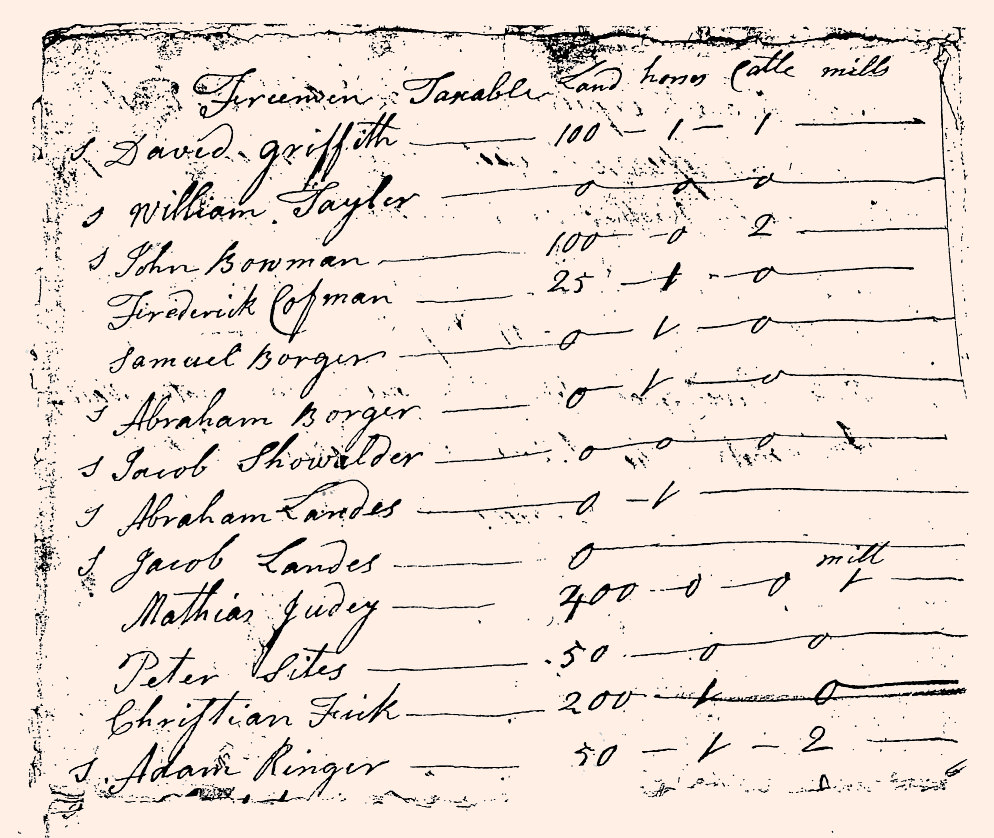 Freemen Taxable Land horses Catle mills
S David Griffith — 100 — 1 — 1 —
S William Tayler — 0 0 0 —
S John Bowman — 100 — 0 2 —
Firederick Cofman — 25 — 1 — 0 —
Samuel Borger — 0 — 1 — 0 —
S Abraham Borger — 0 — 1 — 0 —
S Jacob Showalder — 0 — 0 — 0 —
S Abraham Landes — 0 — 1 —
S Jacob Landes — 0 —
mill
Mathias Judey — 400 — 0 — 0 1 —
Peter Sites — 50 — 0 — 0 —
Chriſtian Fuik — 200 — 1 — 0 —
S. Adam Ringer — 50 — 1 — 2 —